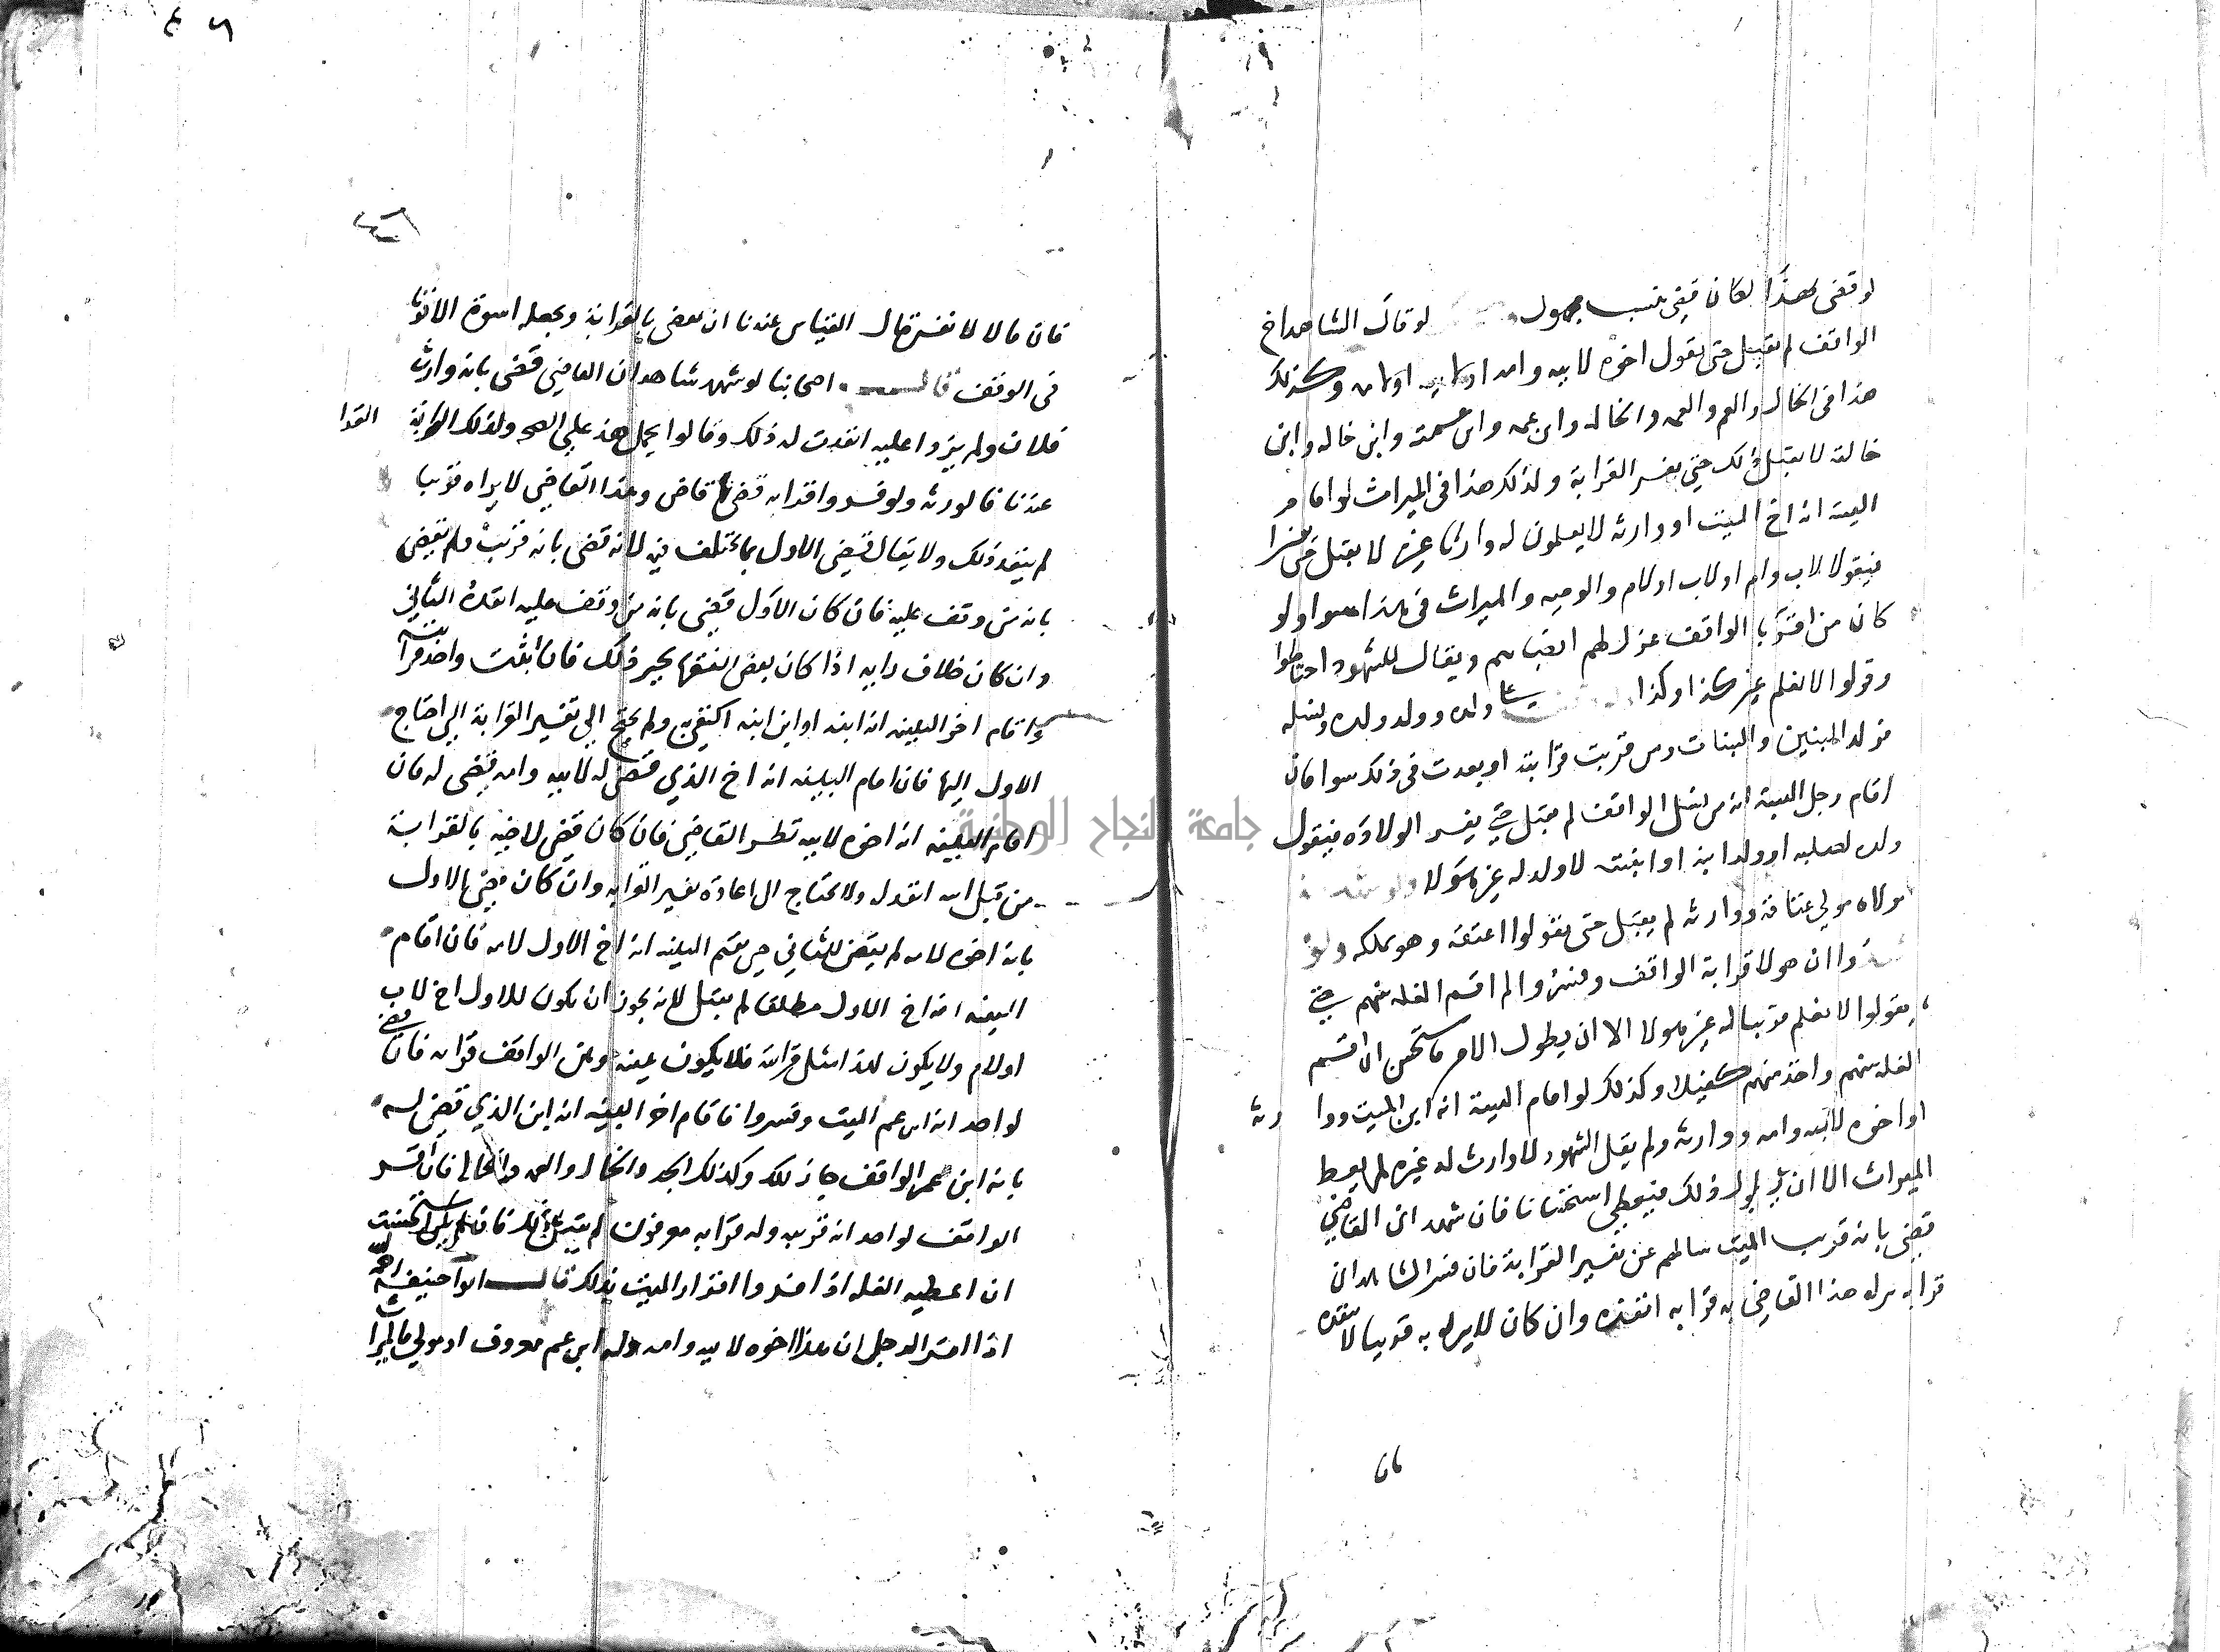 لو قضى بهذا لكان قضى بنسب مجهول لو قال الشاهد اخ
الواقف لم يقبل حتى يقول اخوه لابيه وامه او لابيه او لامه وكذلك
هذا فى الخال والعم والعمه والخاله وابن عمه وابن عمته وابن خاله وابن
خالته لا يقبل ذلك حتى يفسر القرابة ولذلك هذا فى الميراث لو اقام
البينه انه اخ الميت او وارثه لا يعلمون له وارثا غيره لا يقبل حتى يفسرا
فيقولا لاب وام او لاب او لام والوصيه والميراث فى هذا سوا ولو
كان من اقربا الواقف عزلهم انصباهم ويقال للشهود احتاطوا
وقولوا لا نعلم غير كذا وكذا على ولده وولد ولده ونسله
فولد البنين والبنات ومن قربت قرابته او بعدت فى ذلك سوا فان
اقام رجل البينة انه من نسل الواقف لم يقبل حتى يفسر الولاده فيقول
ولده لصلبه او ولد ابنه او ابنته لا ولد له غير هولا ولو شهد
مولاه مولي عتاقه ووارثه لم يقبل حتى يقولوا اعتقه وهو يملكه ولو
شهدوا ان هولا قرابة الواقف وفسروا لم اقسم الغله بينهم حتى
يقولوا لا نعلم قريبا له غير هولا الا ان يطول الامر فاستحسن ان اقسم
الغله بينهم واخذ منهم كفيلا وكذلك لو اقام البينة انه ابن الميت ووا رثه
او اخوه لابيه وامه ووارثه ولم يقل الشهود لا وارث له غيره لم يعط
الميراث الا ان يطول ذلك فيعطى استحسانا فان شهد ان القاضي
قضى بانه قريب الميت سالهم عن تفسير القرابة فان فسر الشاهدان
قرابه يراه هذا القاضي به قرابه انفذه وان كان لا يراه به قريبا لا ينفذه
فان
فان قالا لا نفسر قال القياس عندنا ان يقضى بالقرابة ويجعله اسوة الاقربا
فى الوقف قال اصحابنا لو شهد شاهدان ان القاضي قضى بانه وارث
فلان ولم يزيدوا عليه انفذت له ذلك وقالوا يحمل هذا على الصحه ولذلك القرابة
عندنا فالورثه ولو فسروا قرابه قضى بها قاض وهذا القاضي لا يراه قريبا
لم ينفذ ذلك ولا يقال قضى الاول بما يختلف فيه لانه قضى بانه قريب ولم يقض
بانه من وقف عليه فان كان الاول قضى بانه من وقف عليه انفذه الثاني
وان كان خلاف رايه اذا كان بعض الفقها يجيز ذلك فان اثبت واحد قرابته
واقام اخر البينه انه ابنه او ابن ابنه اكتفي به ولم يحتج الى تفسير القرابة التى احتاج
الاول اليها فان اقام البينه انه اخ الذي قضى له لابيه وامه قضى له فان
اقام البينه انه اخوه لابيه نظر القاضى فان كان قضى لاخيه بالقرابة
من قبل ابيه انفذ له ولا يحتاج الى اعادة تفسير القرابه وان كان قضى للاول
بانه اخوه لامه لم يقض للثاني حتى يقيم البينه انه اخ الاول لامه فان اقام
البينه انه اخ الاول مطلقا لم يقبل لانه يجوز ان يكون للاول اخ لاب
او لام ولا يكون للذا مثل قرابته فلا يكون بينه وبين الواقف قرابه فان قضى
لواحد انه ابن عم الميت وفسروا فاقام اخر البينه انه ابن الذي قضى له
بانه ابن عم الواقف جاز ذلك وكذلك الجد والخال والعم والخاله فان اقر
الواقف لواحد انه قريبه وله قرابه معروفون لم يقبل ذلك فان لم يكن استحسنت
ان اعطيه الغله اذا فسروا اقرار الميت بذلك قال ابو حنيفه رحمه الله
اذا اقر الرجل ان هذا اخوه لابيه وامه وله ابن عم معروف او مولي فالميراث